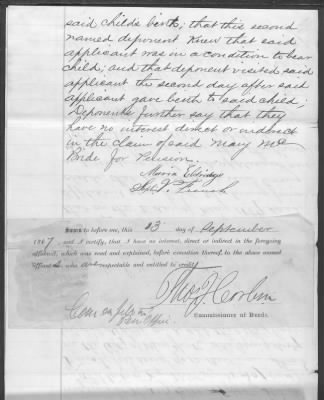 said childs berth; that this second
named deponent knew that said
applicant was in a condition to bear
child; and that deponent visited said
applicant the second day after said
applicant gave berth to said child;
Deponents further say that they
have no interest direct or indirect
in the claim of said Mary Mc
Bride for Pension.
Maria Eldridge
French
Sworn to before me, this 23 day of September
1867 and I certify, that I have no interest, direct or indirect in the foregoing
affidavit; which was read and explained, before execution thereof, to the above named
affiants who are respectable and entitled to credit
Thos J Corlin
Commissioner of Deeds.
on file in
Pen Office